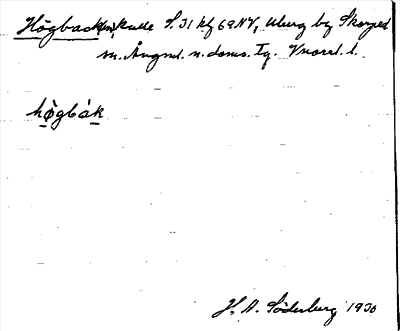 Högbacken, kulle S. 31 kf 69 NV, Uberg by Skorped
sn. Ångml. n. doms. Tg. Vnorrl. l.
högbák
H. A. Söderberg 1930